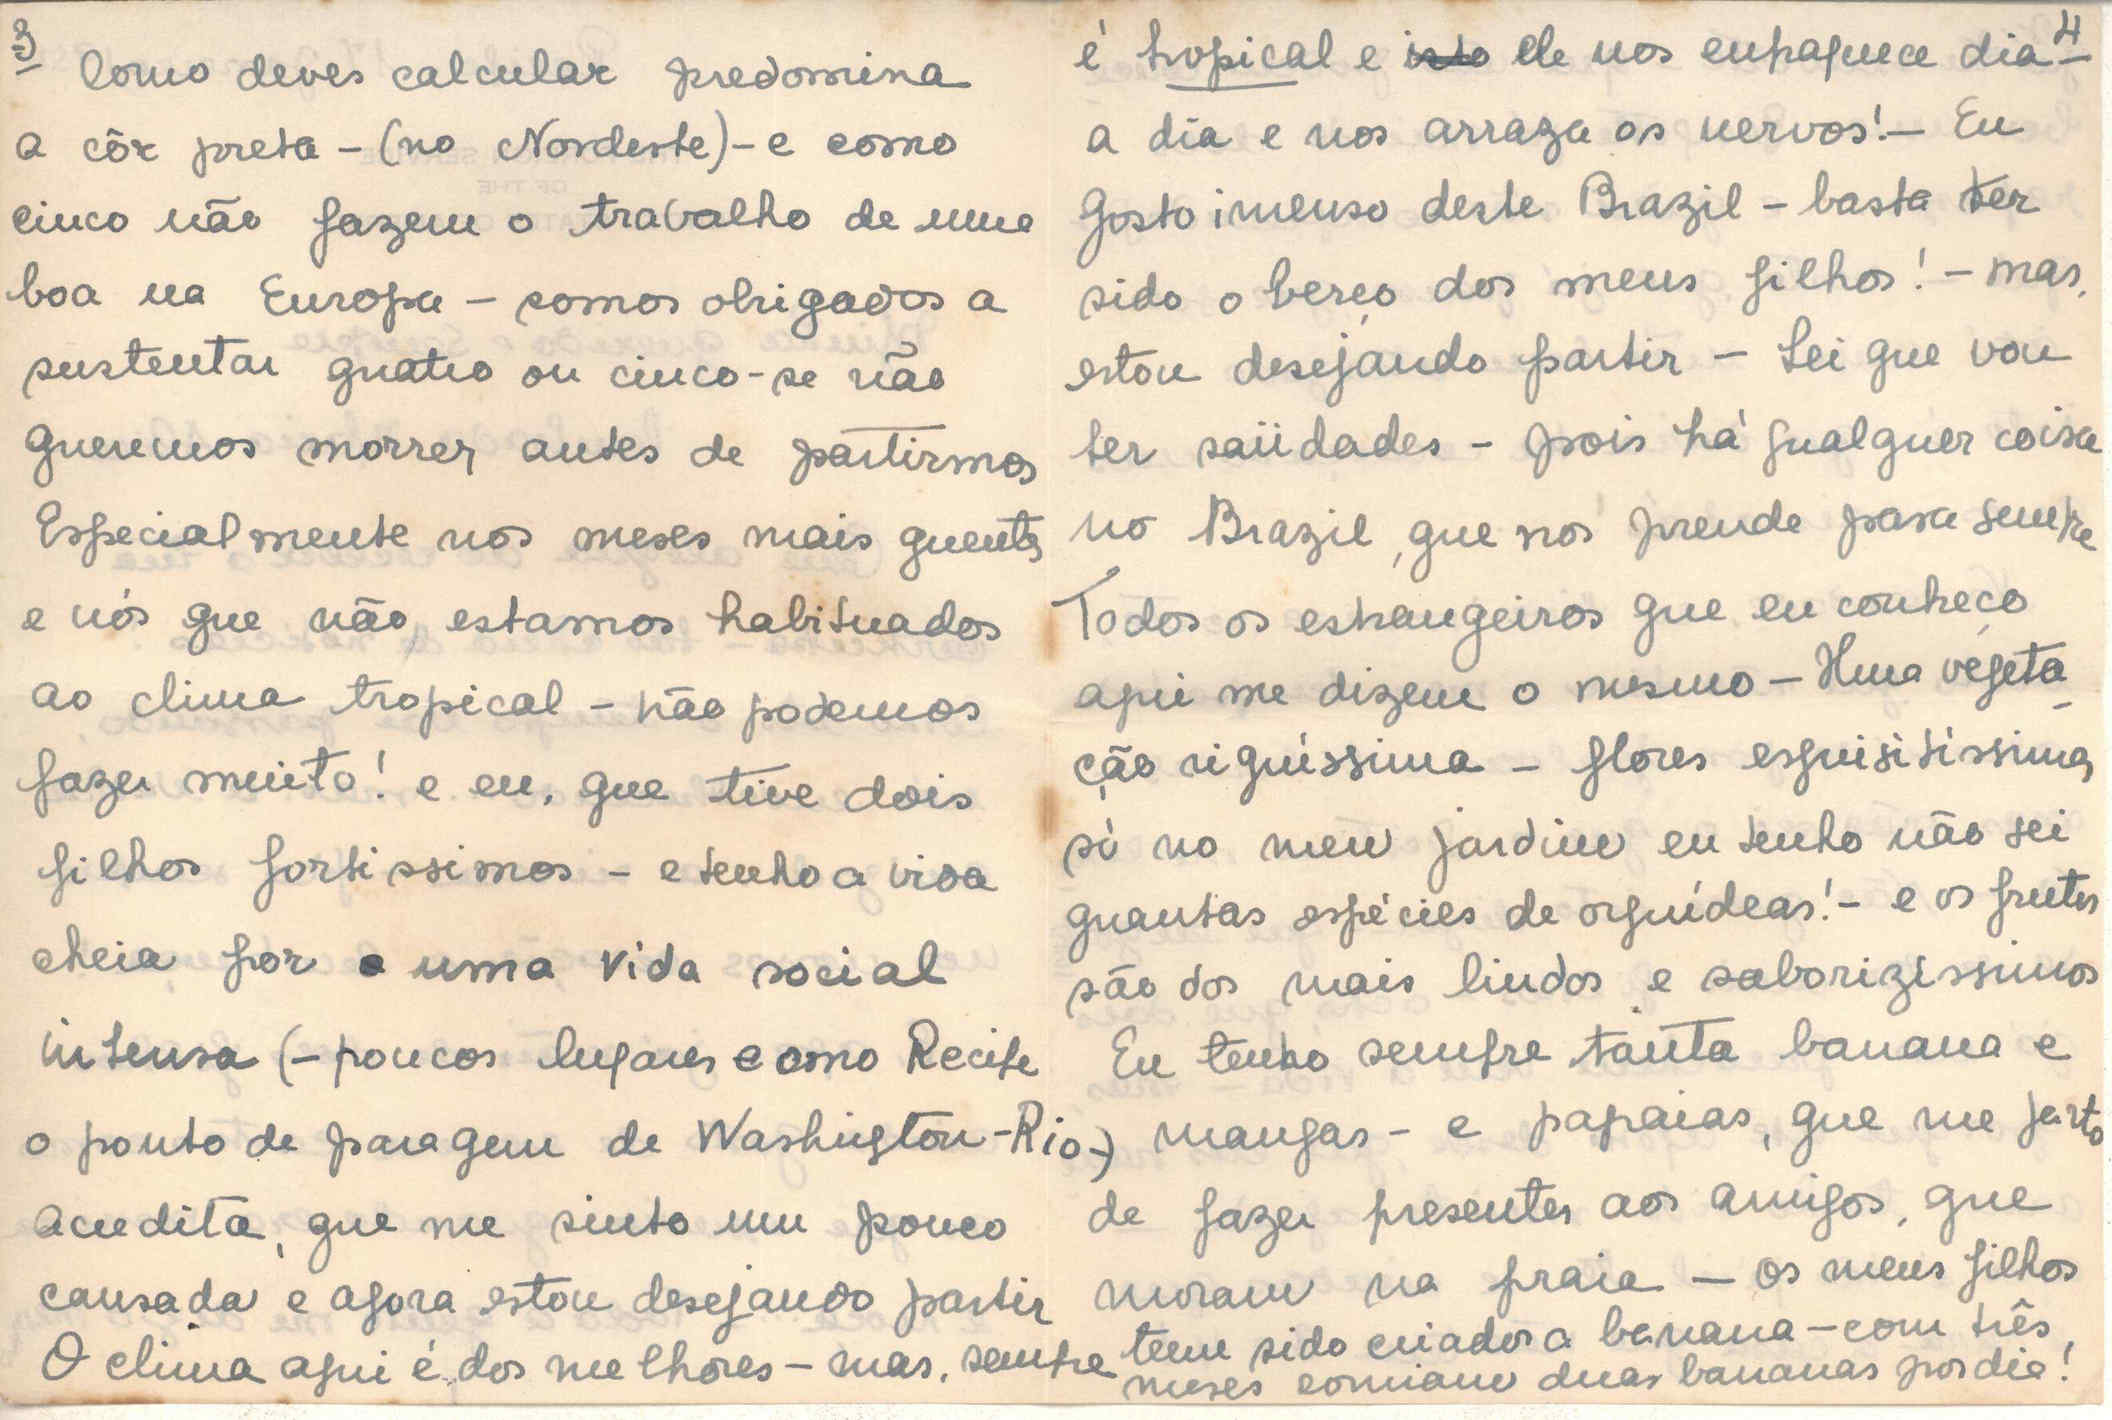 3
Como deves calcular predomina
a côr preta - (no Nordeste) - e como
cinco não fazem o trabalho de uma
boa na Europa - somos obrigados a
sustentar quatro ou cinco - se não
queremos morrer antes de partirmos
Especialmente nos meses mais quentes
e nós que não estamos habituados
ao clima tropical - não podemos
fazer muito! e eu, que tive dois
filhos fortissimos - e tenho a vida
cheia por uma vida social
intensa (- poucos lugares como Recife
o ponto de paragem de Washington - Rio -)
acredita, que me sinto um pouco
cansada e agora estou desejando partir
O clima aqui é dos melhores - mas, sempre
4
é tropical e isto ele nos enfraquece dia
a dia e nos arraza os nervos! - Eu
gosto imenso deste Brazil - basta ter
sido o berço dos meus filhos! - mas,
estou desejando partir - Sei que vou
ter saüdades - pois há qualquer coisa
no Brazil, que nos prende para sempre
Todos os estrangeiros que eu conheço
aqui me dizem o mesmo - Uma vegeta-
ção riquíssima - flores esquisitíssimas
só no meu jardim eu tenho não sei
quantas espécies de orquídeas! - e os frutos
são dos mais lindos e saborizissimos
Eu tenho sempre tanta banana e
mangas - e papaias, que me farto
de fazer presentes aos amigos, que
moram na praia - Os meus filhos
tem sido criados a banana - com três
meses comiam duas bananas por dia!